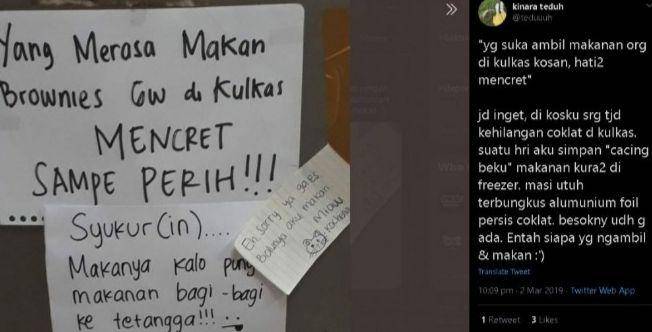 Yang Merasa Makan
Brownies Gw di Kulkas
MENCRET
SAMPE PERIH!!!
Syukur(in)....
Makanya kalo puny
makanan bagi-bagi
ke tetangga!!!
Eh sorry ya gaes
aku makan
Miaw
kinara teduh
@teduuuh
"yg suka ambil makanan org
di kulkas kosan, hati2
mencret"
jd inget, di kosku srg tjd
kehilangan coklat d kulkas.
suatu hri aku simpan "cacing
beku" makanan kura2 di
freezer. masi utuh
terbungkus alumunium foil
persis coklat. besokny udh g
ada. Entah siapa yg ngambil
& makan :')
Translate Tweet
10:09 pm · 2 Mar 2019 · Twitter Web App
1 Retweet 3 Likes